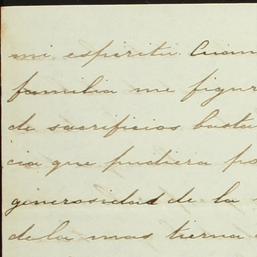 mi espiritu Cuan
familia me figur
de sacrificios basta
cia que pudiera po
generosidad de la
dela mas tierna